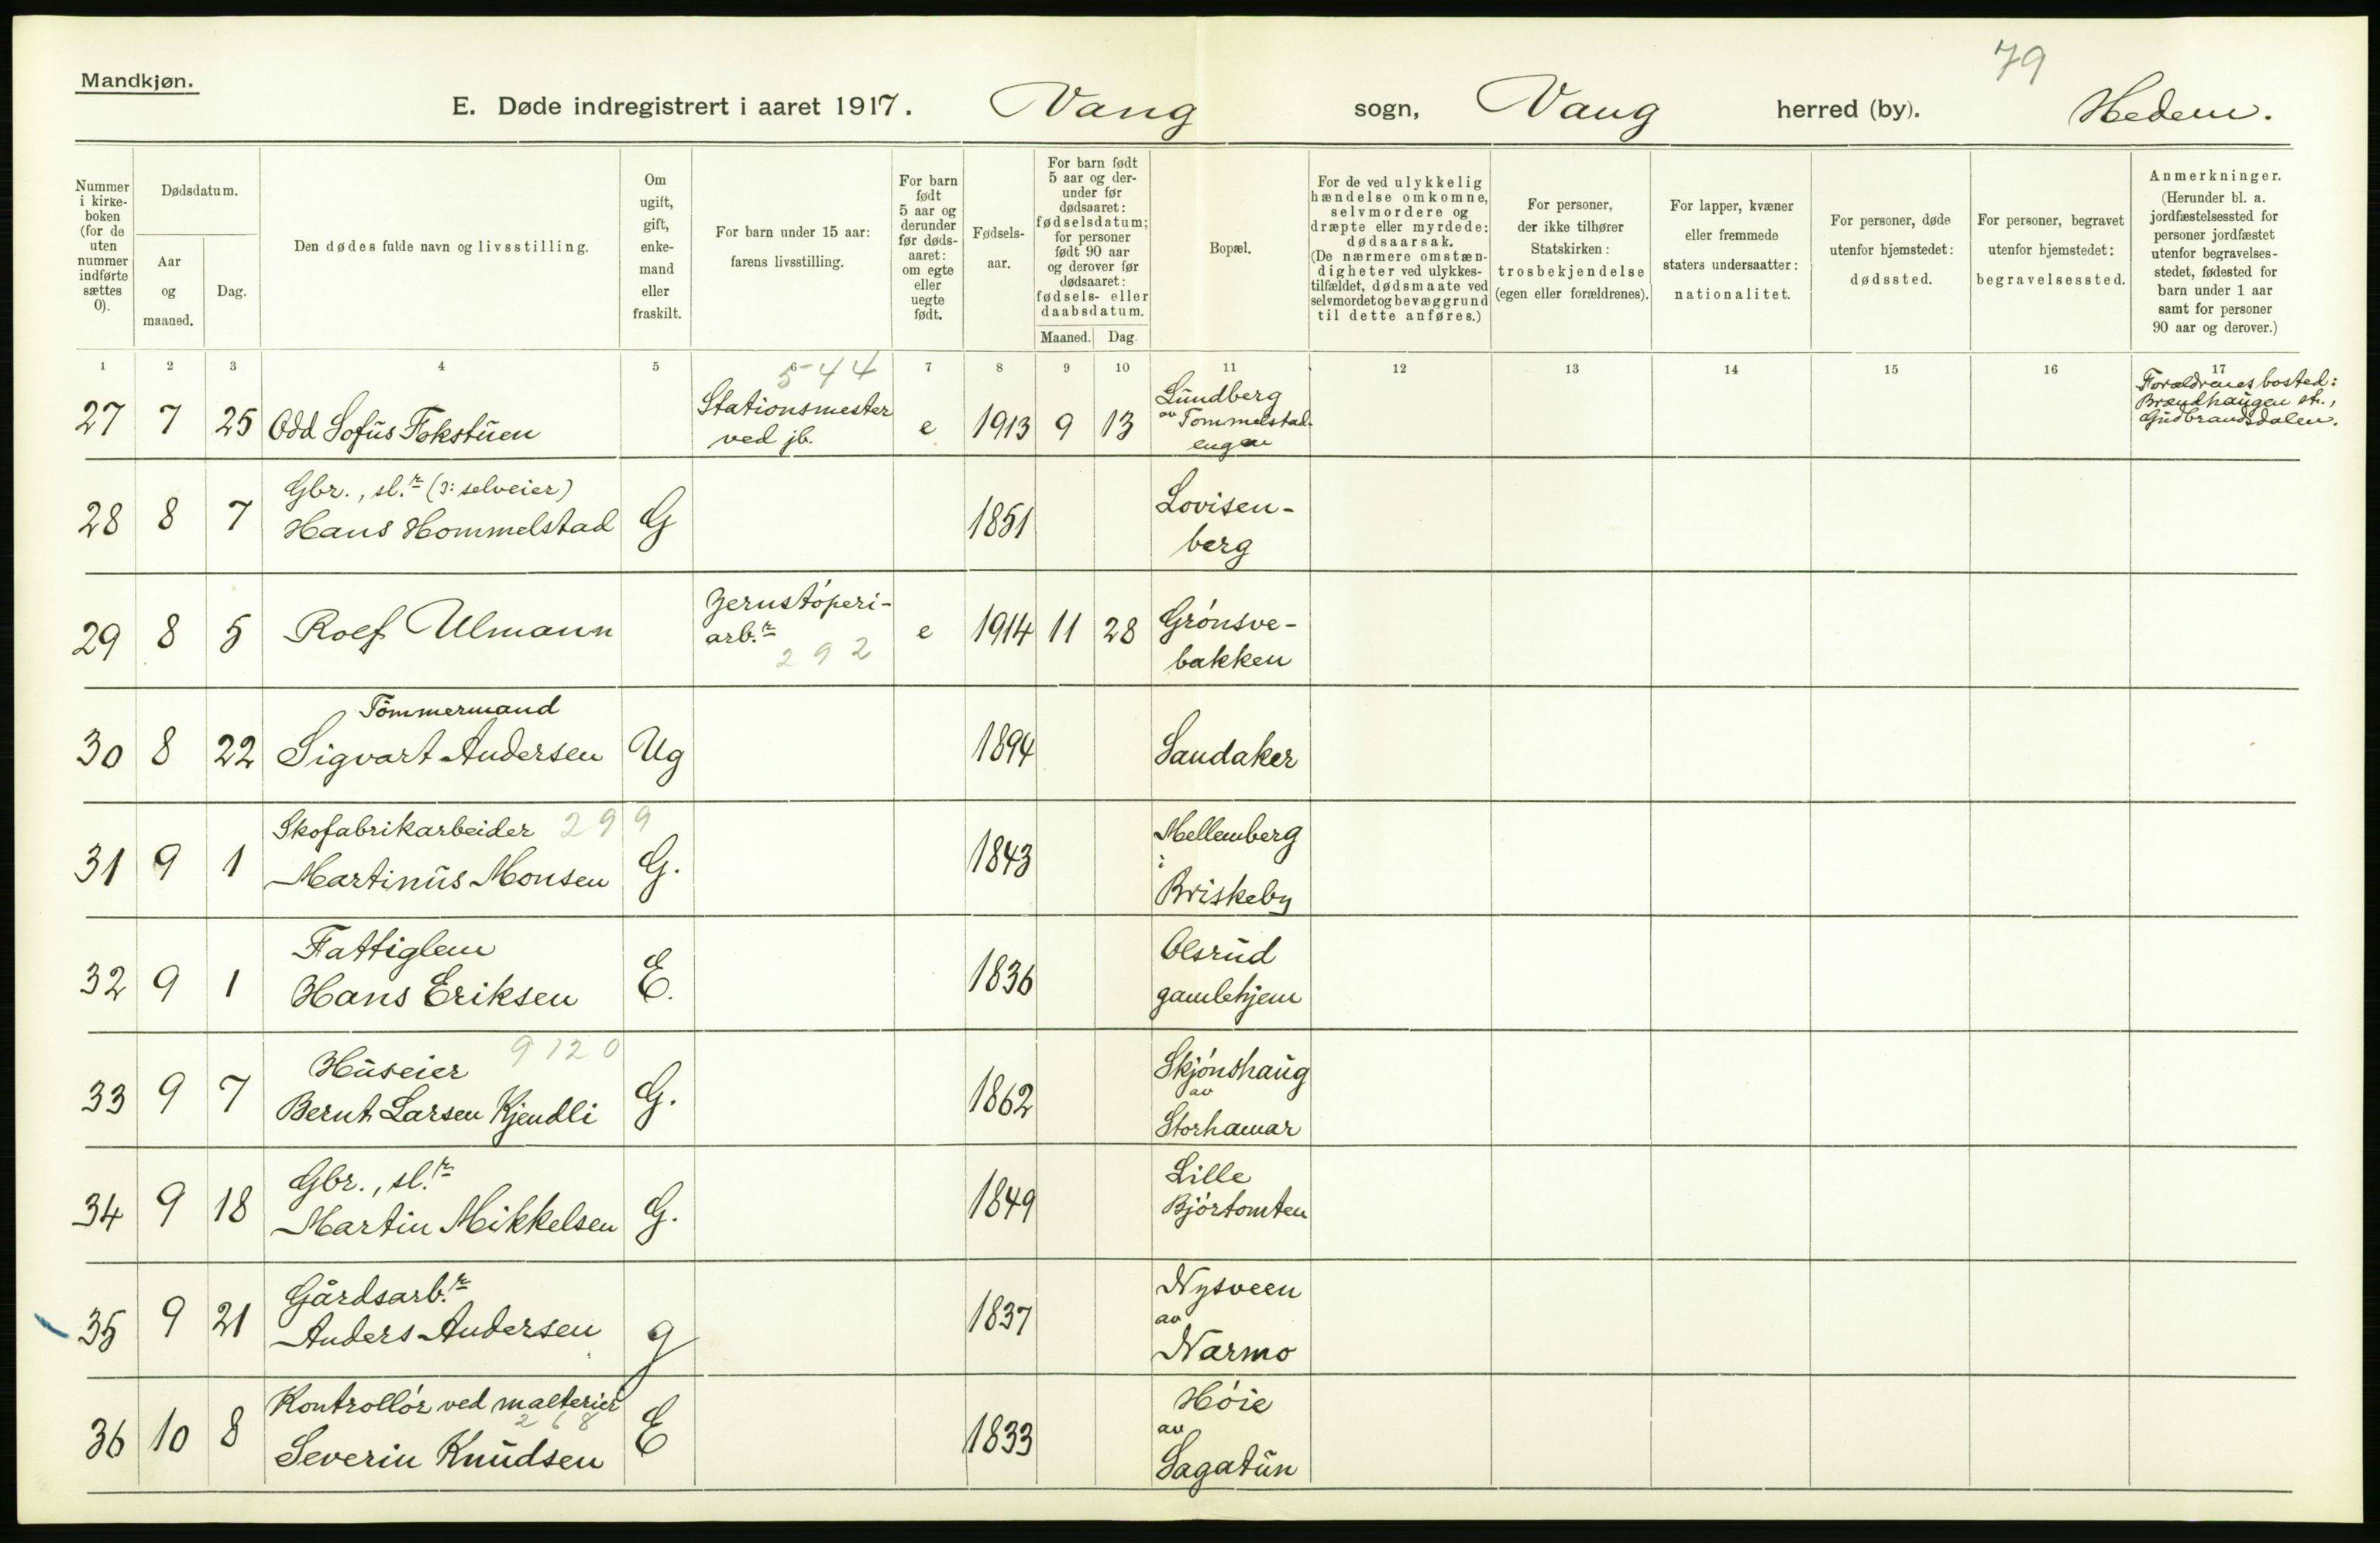 79
Mandkjøn.
E. Døde indregistrert i aaret 1917. Vang sogn, Vang herred (by). Hedem.
Nummer i kirke-boken (for de uten nummer indførte sættes 0).
Dødsdatum.
Aar og maaned.
Dag.
Den dødes fulde navn og livsstilling.
Om ugift, gift, enke-mand eller fraskilt.
For barn under 15 aar: farens livsstilling.
For barn født 5 aar og derunder før døds-aaret: om egte eller uegte født.
Fødsels-aar.
For barn født 5 aar og der-under før dødsaaret: fødselsdatum; for personer født 90 aar og derover før dødsaaret: fødsels- eller daabsdatum.
Maaned. Dag.
Bopæl.
For de ved ulykkelig hændelse omkomne, selvmordere og dræpte eller myrdede: dødsaarsak. (De nærmere omstæn-digheter ved ulykkes-tilfældet, dødsmaate ved selvmordet og bevæggrund til dette anføres.)
For personer, der ikke tilhører Statskirken: trosbekjendelse (egen eller forældrenes).
For lapper, kvæner eller fremmede staters undersaatter: nationalitet.
For personer, døde utenfor hjemstedet: dødssted.
For personer, begravet utenfor hjemstedet: begravelsessted.
Anmerkninger. (Herunder bl. a. jordfæstelsessted for personer jordfæstet utenfor begravelses-stedet, fødested for barn under 1 aar samt for personer 90 aar og derover.)
1 2 3 4 5 6 7 8 9 10 11 12 13 14 15 16 17
544
27 7 25 Odd Sofus Fokstuen Stationsmester ved jb. e 1913 9 13 Lundberg av Tommelstad-engen Forældrenes bosted: Brændhaugen st., Gudbrandsdalen.
Gbr., sl.r (ɔ: selveier)
28 8 7 Hans Hommelstad G 1851 Lovisen-berg
29 8 5 Rolf Ulmann Jernstøperi-arb.r 292 e 1914 11 28 Grønsve-bakken
Tømmermand
30 8 22 Sigvart Andersen Ug 1894 Sandaker
Skofabrikarbeider 299
31 9 1 Martinus Monsen G. 1843 Mellemberg i Briskeby
Fattiglem
32 9 1 Hans Eriksen E. 1836 Olsrud gamlehjem
Huseier 9120
33 9 7 Bernt Larsen Kjendli G. 1862 Skjønshaug av Storhamar
Gbr., sl.r
34 9 18 Martin Mikkelsen G. 1849 Lille Bjørtomten
Gårdsarb.r
35 9 21 Anders Andersen g 1837 Nysveen av Narmo
Kontrollør ved malterier 268
36 10 8 Severin Knudsen E 1833 Høie av Sagatun